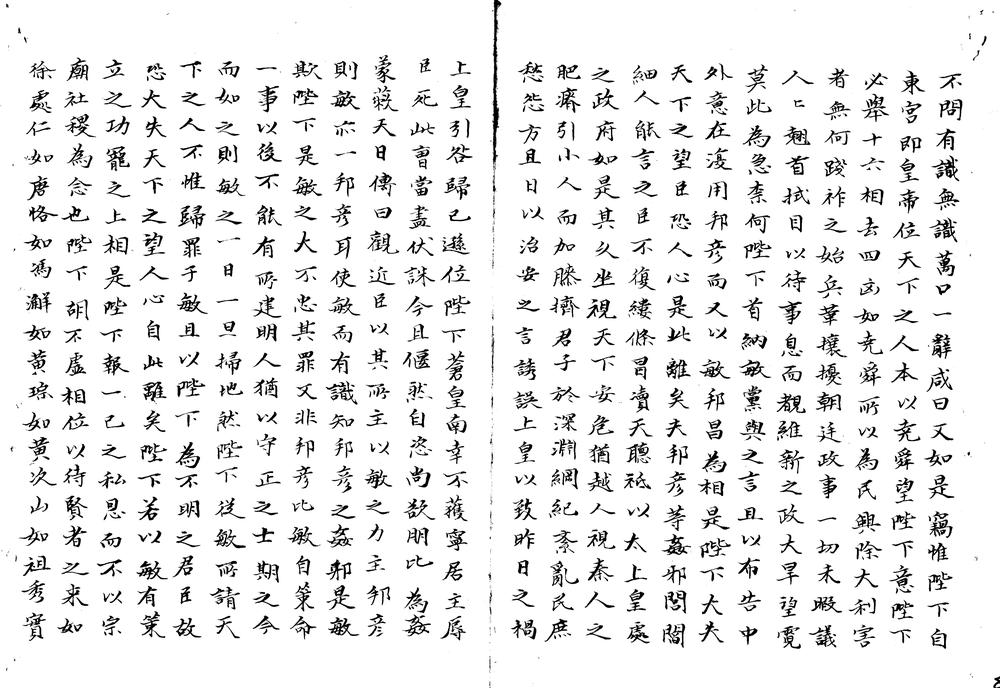 不問有識無識萬口一辭咸曰又如是竊惟陛下自
東宮即皇帝位天下之人本以堯舜望陛下意陛下
必舉十六相去四凶如堯舜所以為民興除大利害
者無何踐祚之始兵革攘擾朝廷政事一切未暇議
人々翹首拭目以待事息而覩維新之政大旱望霓
莫此為急柰何陛下首納敏黨與之言且以布告中
外意在復用邦彦而又以敏邦昌為相是陛下大失
天下之望臣恐人心是此離矣夫邦彦等姦邪閭閻
細人能言之臣不復縷條冒瀆天聽祗以太上皇處
之政府如是其久坐視天下安危猶越人視秦人之
肥瘠引小人而加膝擠君子於深淵綱紀紊亂民庶
愁怨方且日以治安之言誘誤上皇以致昨日之禍
上皇引咎歸己遜位陛下蒼皇南幸不獲寧居主辱
臣死此曹當盡伏誅今且偃然自恣尚欲朋比為姦
蒙蔽天日傳曰觀近臣以其所主以敏之力主邦彦
則敏亦一邦彦耳使敏而有識知邦彦之姦邪是敏
欺陛下是敏之大不忠其罪又非邦彦比敏自策命
一事以後不能有所建明人猶以守正之士期之今
而如之則敏之一日一旦掃地然陛下從敏所請天
下之人不惟歸罪于敏且以陛下為不明之君臣故
恐大失天下之望人心自此離矣陛下若以敏有策
立之功寵之上相是陛下報一己之私恩而不以宗
廟社稷為念也陛下胡不虛相位以待賢者之来如
徐處仁如唐恪如馮澥如黃琮如黃次山如祖秀實